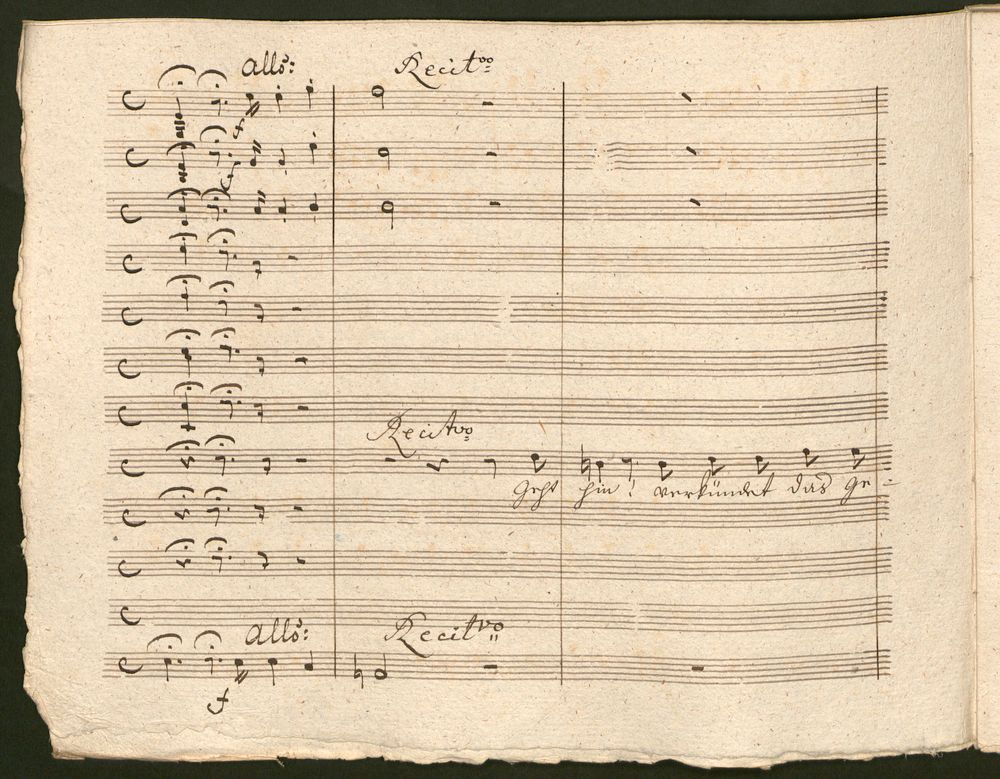 Allo:
Recitvo
f
f
Recitvo
Geht hin! verkündet das Ge-
Allo:
Recitvo
f